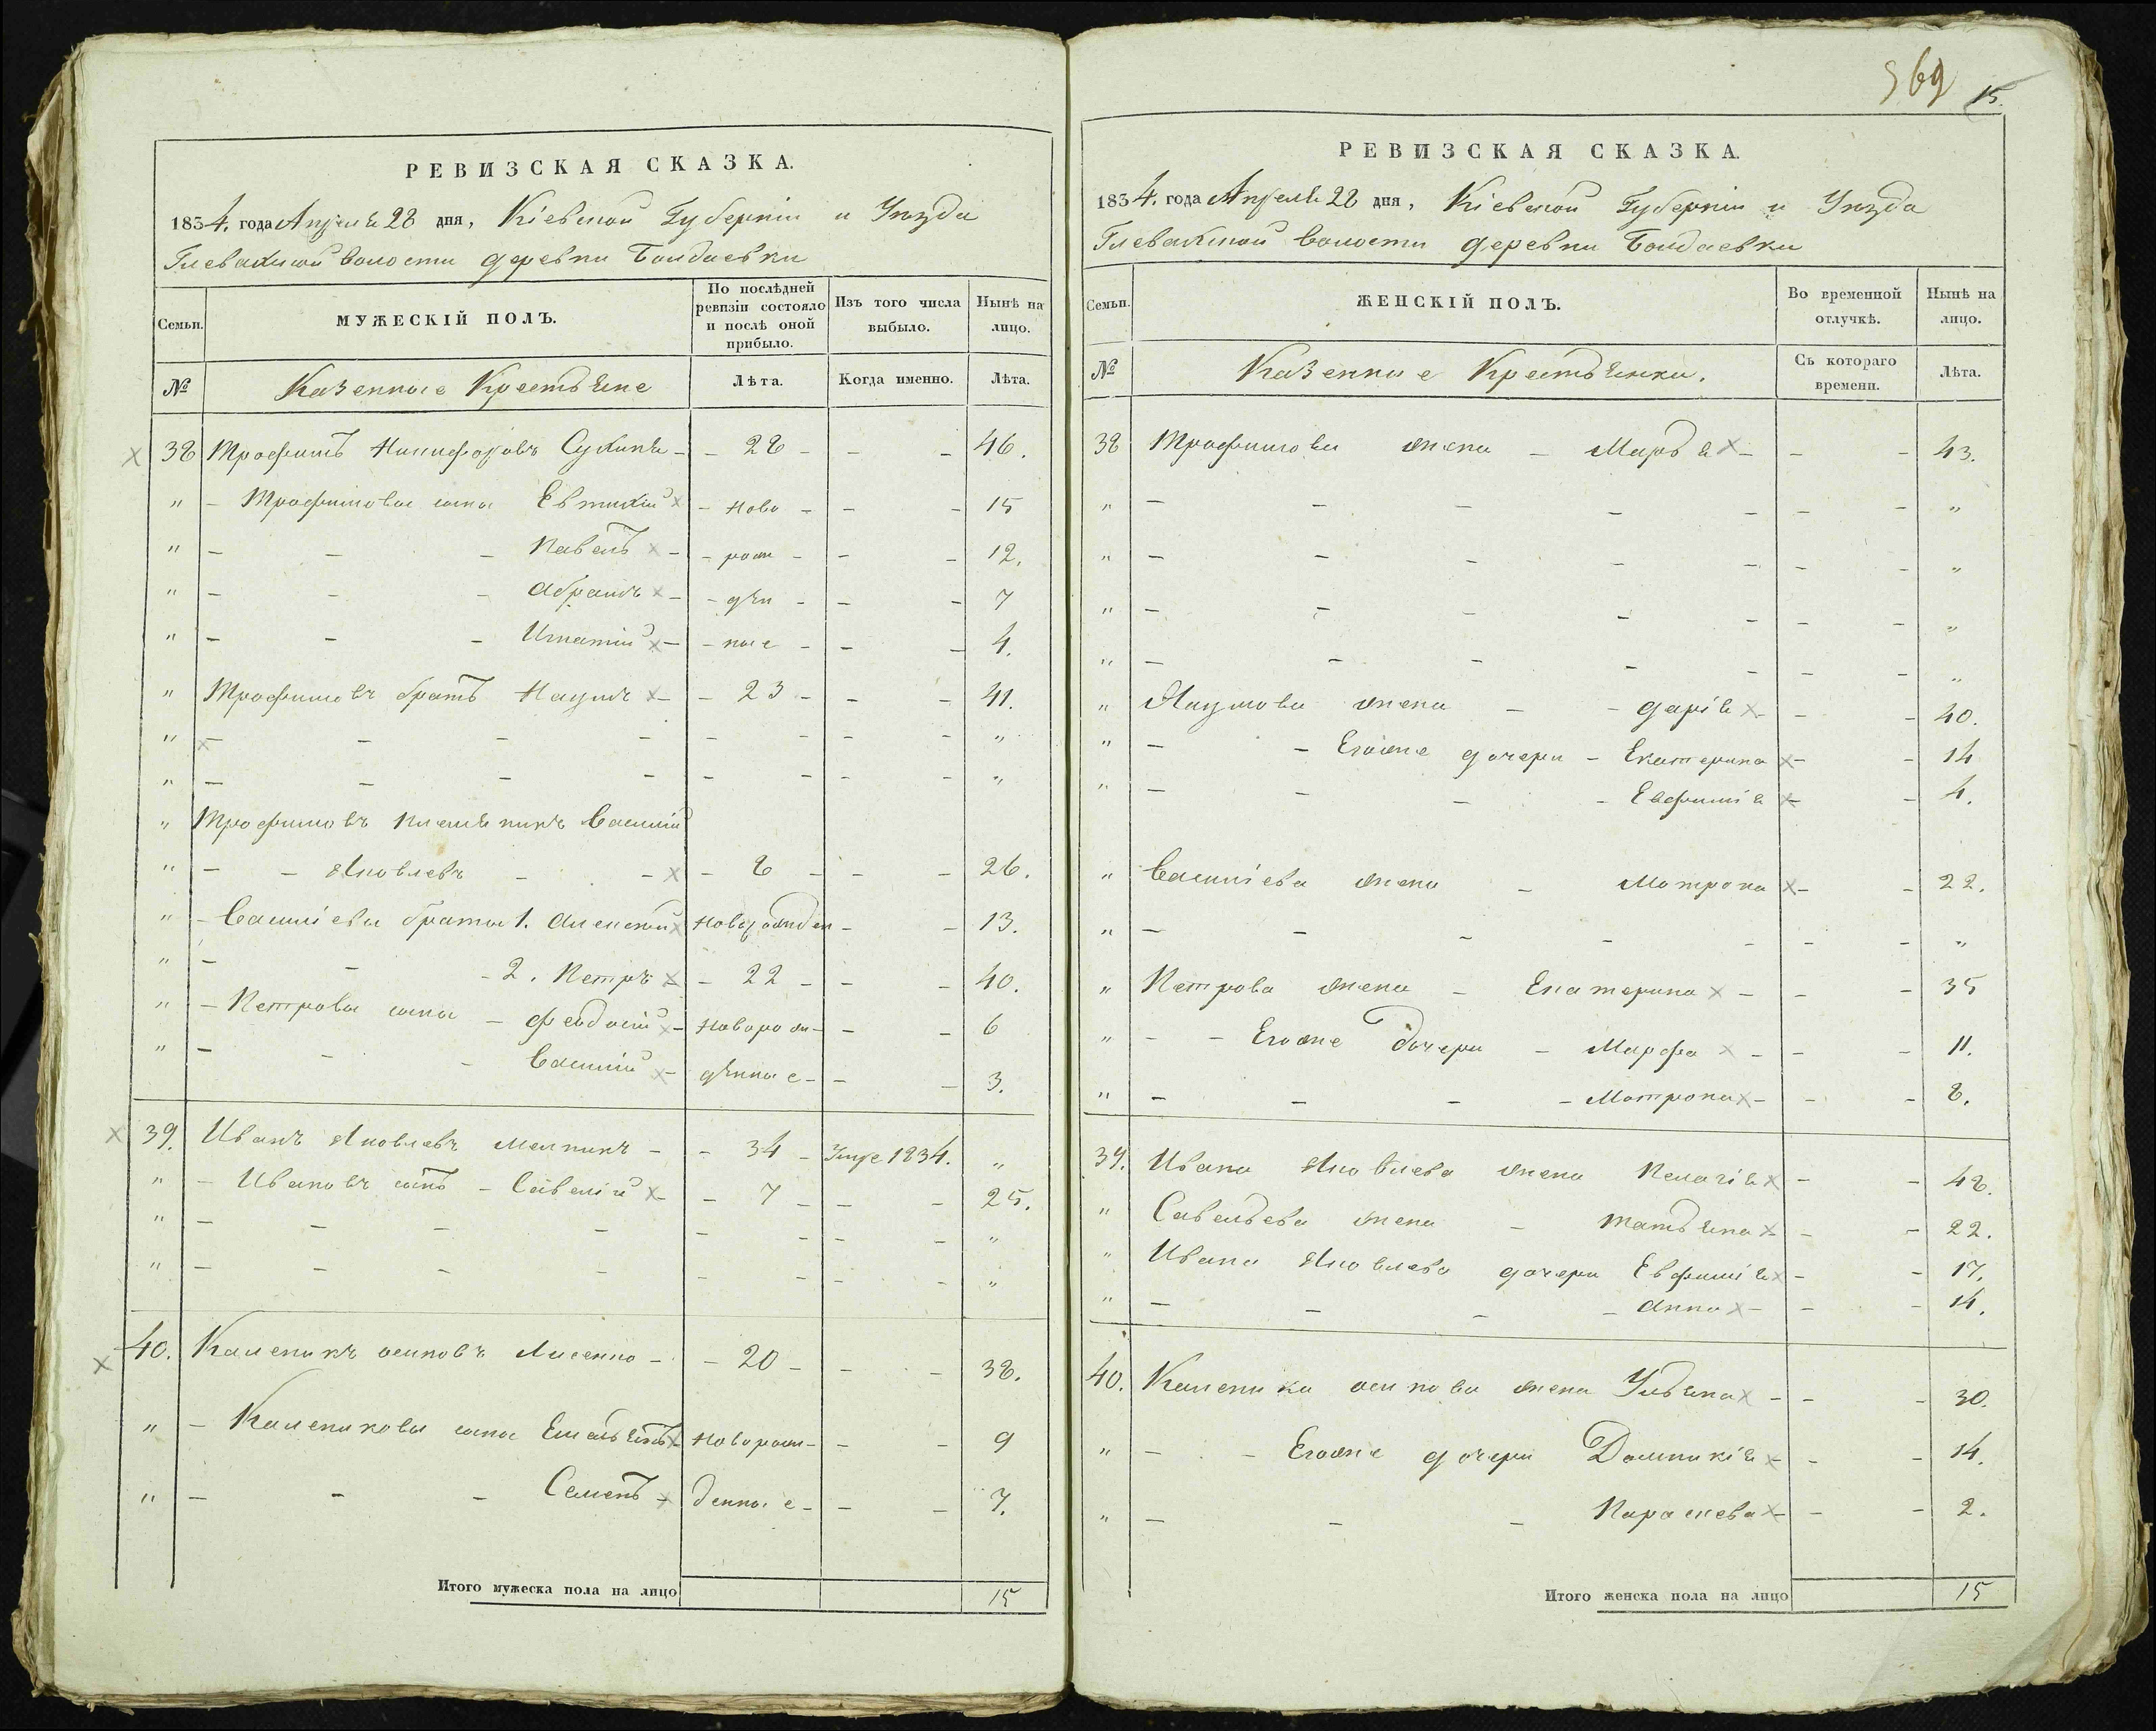 569 15.
РЕВИЗСКАЯ СКАЗКА.
1834. года Апреля 28 дня, Кіевской Губерніи и Уѣзда
Глевахской волости деревни Болдаевки
Семьи. МУЖЕСКІЙ ПОЛЪ. По послѣдней ревизіи состояло и послѣ оной прибыло. Изъ того числа выбыло. Нынѣ на лицо.
№ Казенные Крестьяне Лѣта. Когда именно. Лѣта.
38 Трофимъ Никифоровъ - 28 - - - 46.
" - Трофимовы сыны Евтихій - ново - - - 15
" - - - Павелъ - - рож - - - 12.
" - - - Абрамъ - - дѣн - - - 7
" - - - Игнатій - - ные - - - 4.
" Трофимовъ братъ Наумъ - - 23 - - - 41.
" - - - - - - - - "
" - - - - - - - - "
" Трофимовъ племянникъ Василій
" - - Яковлевъ - - - 8 - - - 26.
" - Василіевы братья 1. Алексѣй новорожден - - 13.
" - - - 2. Петръ - 22 - - - 40.
" - Петровы сыны - Феодосій - новорож - - - 6
" - - - Василій - дѣнные - - - 3.
39. Иванъ Яковлевъ Мелникъ - - 34 - Умре 1834. "
" - Ивановъ сынъ - Савелій - - 7 - - - 25.
" - - - - - - - - "
" - - - - - - - - "
40. Каленикъ осиповъ Лисенко - - 20 - - - 38.
" - Калениковы сыны Емельянъ новорож - - - 9
" - - - Семенъ - денные - - - 7.
Итого мужеска пола на лицо 15
РЕВИЗСКАЯ СКАЗКА.
1834. года Апреля 28 дня, Кіевской Губерніи и Уѣзда
Глевахской волости деревни Болдаевки
Семьи. ЖЕНСКІЙ ПОЛЪ. Во временной отлучкѣ. Нынѣ на лицо.
№ Казенные Крестьянки. Съ котораго времени. Лѣта.
38 Трофимова жена - Марья - - - 43.
" - - - - - - - "
" - - - - - - - "
" - - - - - - - "
" - - - - - - - "
" Наумова жена - - Дарія - - - 40.
" - - Егоже дочери - Екатерина - - 14
" - - - - Евфимія - - 4.
" Василіева жена - Матрона - - 22.
" - - - - - - - "
" Петрова жена - Екатерина - - - 35
" - - Егоже дочери - Марфа - - - 11.
" - - - - Матрона - - - 8.
39. Ивана Яковлева жена Пелагія - - 48.
" Савельева жена - Татьяна - - 22.
" Ивана Яковлева дочери Евфимія - - 17.
" - - - - Анна - - - 14.
40. Каленика осипова жена Ульяна - - - 30.
" - - Егоже дочери Домникія - - - 14.
" - - - Параскева - - - 2.
Итого женска пола на лицо 15